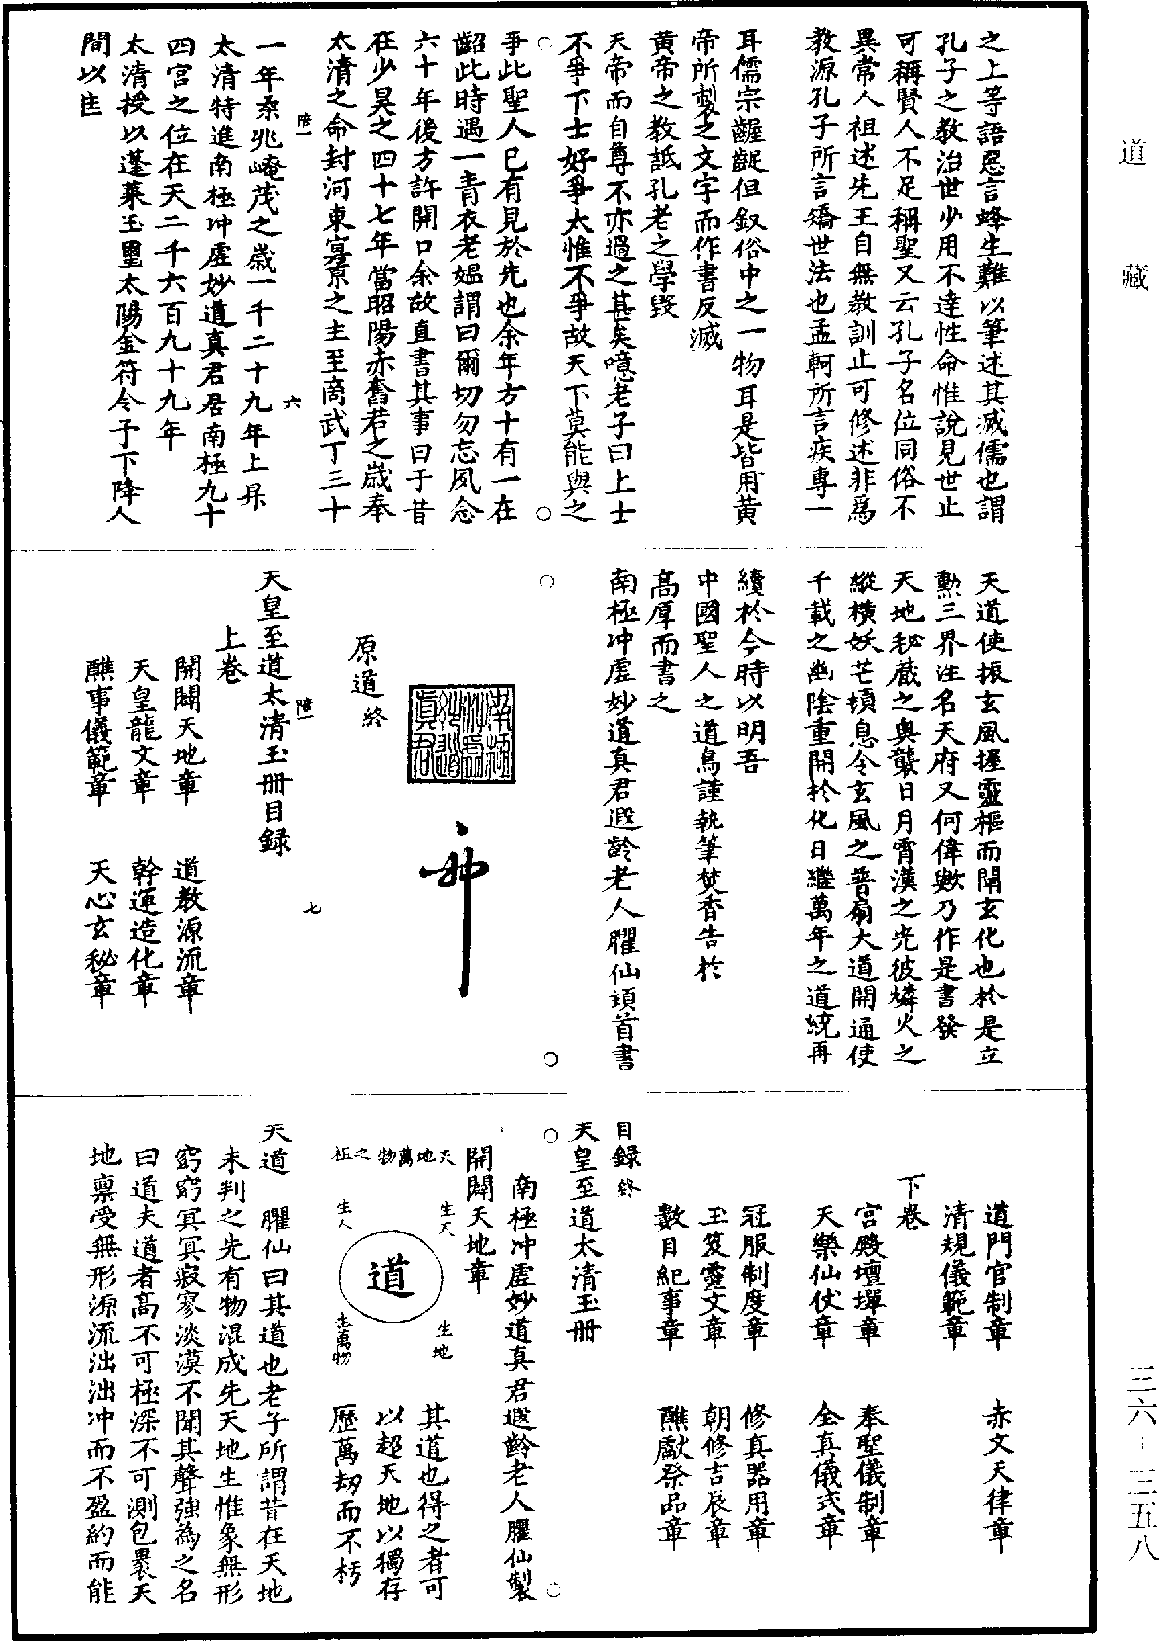 之上等語惡言蜂生難以筆述其滅儒也謂
孔子之教治世少用不達性命惟說見世止
可稱賢人不足稱聖又云孔子名位同俗不
異常人祖述先王自無教訓止可修述非爲
教源孔子所言矯世法也孟軻所言疾專一
耳儒宗齷齪但釵俗中之一物耳是皆用黄
帝所製之文字而作書反滅
黄帝之教詆孔老之學毀
天帝而自尊不亦過之甚矣噫老子曰上士
不爭下士好爭太惟不爭故天下莫能與之
爭此聖人巳有見於先也余年方十有一在
齠此時遇一青衣老媪謂曰爾切勿忘夙念
六十年後方許開口余故直書其事曰于昔
在少昊之四十七年當昭陽赤奮若之歲奉
太清之命封河東寡原之主至商武丁三十
陪一
六
一年柔兆崦茂之歲一千二十九年上昇
太清特進南極冲虚妙道真君居南極九十
四宮之位在天二千六百九十九年
太清授以蓬萊玉璽太陽金符令子下降人
間以匡
天道使振玄風握靈樞而闡玄化也於是立
勲三界注名天府又何偉歟乃作是書發
天地秘藏之奧襲日月霄漢之光彼燐火之
縱横妖芒頓息令玄風之普扇大道開通使
千載之幽陰重開於化日繼萬年之道統再
續於今時以明吾
中國聖人之道焉謹執筆焚香告於
高厚而書之
南極冲虚妙道真君遐齡老人臞仙頓首書
南極冲虛妙道真君
原道終
陪一
七
天皇至道太清玉册目録
上卷
開闢天地章　道教源流章
天皇龍文章　幹運造化章
醮事儀範章　天心玄秘章
道門官制章　赤文天律章
清規儀範章
下卷
宮殿壇墠章　奉聖儀制章
天樂仙仗章　全真儀式章
冠服制度章　修真器用章
玉笈靈文章　朝修吉辰章
數目紀事章　醮獻祭品章
目録終
天皇至道太清玉册
南極冲虚妙道真君遐齡老人臞仙製
開闢天地章
天地萬物之祖
生天
生地
道
生人
生萬物
其道也得之者可
以超天地以獨存
歷萬刼而不朽
天道　臞仙曰其道也老子所謂昔在天地
未判之先有物混成先天地生惟象無形
窈窈冥冥寂寥淡漠不聞其聲強為之名
曰道夫道者高不可極深不可測包裹天
地禀受無形源流泏泏冲而不盈約而能
道藏
三六-三五八